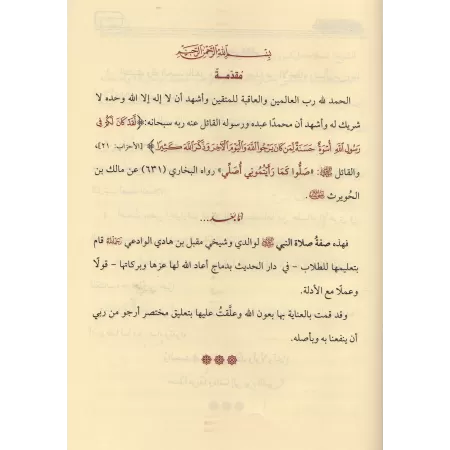 بسم الله الرحمن الرحيم
مُقدّمةٌ
الحمد لله رب العالمين والعاقبة للمتقين وأشهد أن لا إله إلا الله وحده لا
شريك له وأشهد أن محمدًا عبده ورسوله القائل عنه ربه سبحانه: ﴿لَّقَدْ كَانَ لَكُمْ فِى
رَسُولِ ٱللَّهِ أُسْوَةٌ حَسَنَةٌ لِّمَن كَانَ يَرْجُوا۟ ٱللَّهَ وَٱلْيَوْمَ ٱلْـَٔاخِرَ وَذَكَرَ ٱللَّهَ كَثِيرًا﴾ [الأحزاب: ٢١]،
والقائل ﷺ: «صَلُّوا كَمَا رَأَيْتُمُونِي أُصَلِّي» رواه البخاري (٦٣١) عن مالك بن
الحُويرث .
أما بعد...
فهذه صفةُ صلاة النبي ﷺ لوالدي وشيخي مقبل بن هادي الوادعي قام
بتعليمها للطلاب - في دار الحديث بدماج أعاد الله لها عزها وبركاتها - قولًا
وعملًا مع الأدلة.
وقد قمت بالعناية بها بعون الله وعلَّقتُ عليها بتعليق مختصر أرجو من ربي
أن ينفعنا به وبأصله.